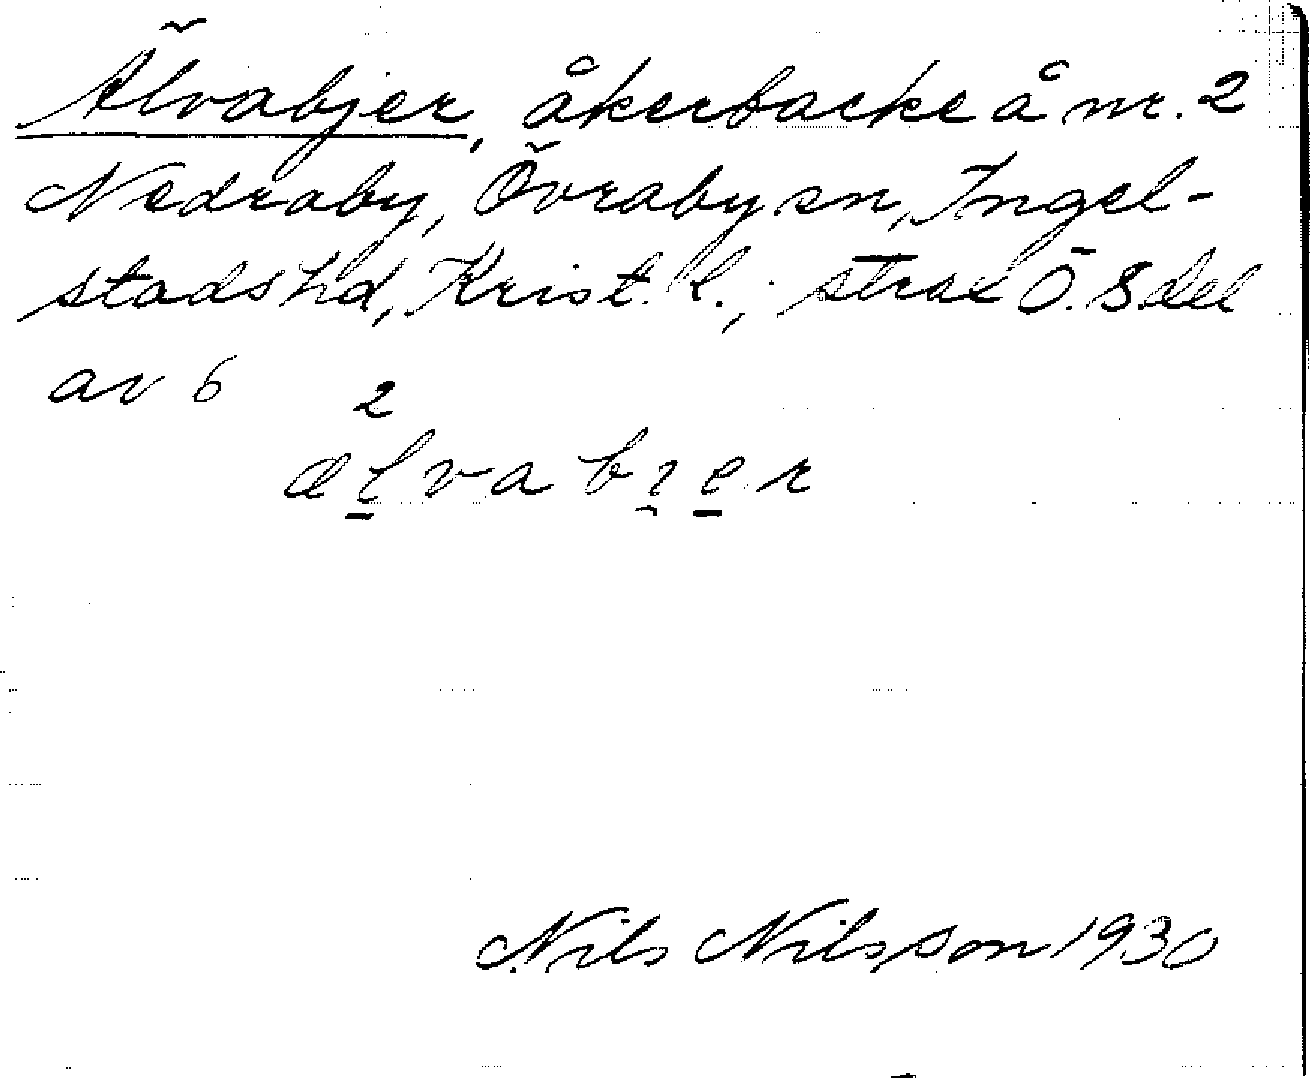 Älvabjer, åkerbacke å nr. 2
Nedraby, Övraby sn, Ingel-
stads hd, Krist. l.; strax Ö. S del
av 6
2
ælvabi̯er
Nils Nilsson 1930